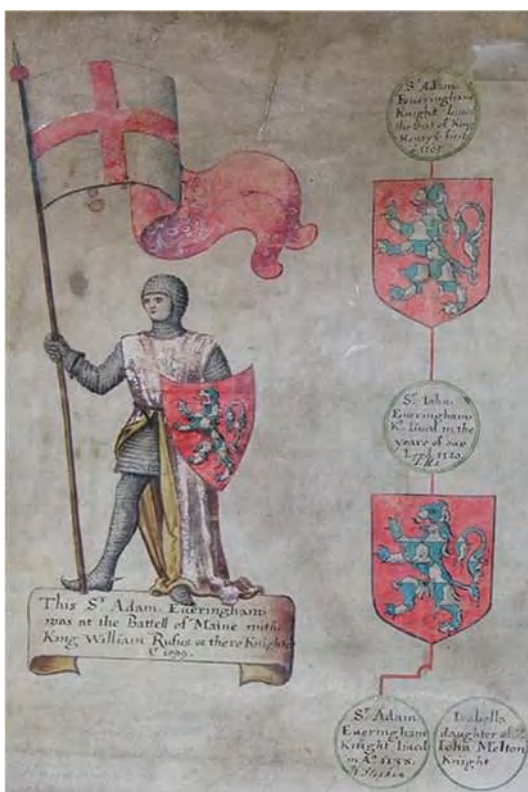 Sr Adam
Eueringham
Knight Liued
the first of King
Henry
1101
Sr Iohn
Eueringham
Kt Liued in the
yeare of our
Lord 1120
This Sr Adam Eueringham
was at the Battell of Maine with
King William Rufus & there Knighted
1099
Sr Adam
Eueringham
Knight Liued
in Ao 1138
K Stephen
Isabella
daughter of Sr
Iohn Melton
Knight